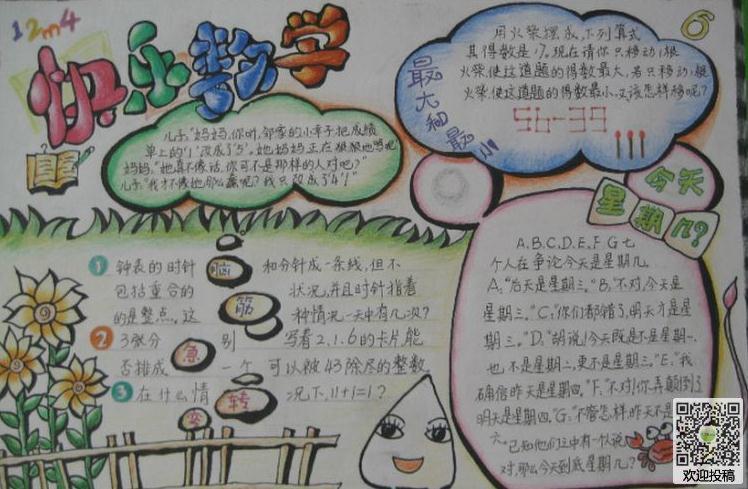 12m4
快乐数学
6
儿子:"妈妈,你听,邻家的小幸子把成绩
单上的'1'改成了'5',她妈妈正在狠狠地骂她
妈妈:"她真不像话,你可不是那样的人对吧?"
儿子:"我才不像她那么蠢呢?我只改成了'4'!"
最大和最小
用火柴摆成下列算式
其得数是17。现在请你只移动1根
火柴,使这道题的得数最大,若只移动1根
火柴,使这道题的得数最小,又该怎样移呢?
56-39
今天
星期几?
脑筋急转弯
1 钟表的时针和分针成一条线,但不
包括重合的状况,并且时针指着
的是整点。这种情况一天中有几次?
2 3张分别写着2.1.6的卡片,能
否排成一个可以被43除尽的整数
3 在什么情况下,11+1=1?
A.B.C.D.E.F G 七
个人在争论今天是星期几。
A:"后天是星期三。"B:"不对,今天是
星期三。"C:"你们都错了,明天才是星
期三。"D:"胡说!今天既是不是星期一,
也不是星期二,更不是星期三。"E:"我
确信昨天是星期四。"F:"不对!你弄颠倒了
明天是星期四。"G:"不管怎样昨天不是
六。已知他们之中有一个说
对,那么今天到底星期几?
欢迎投稿